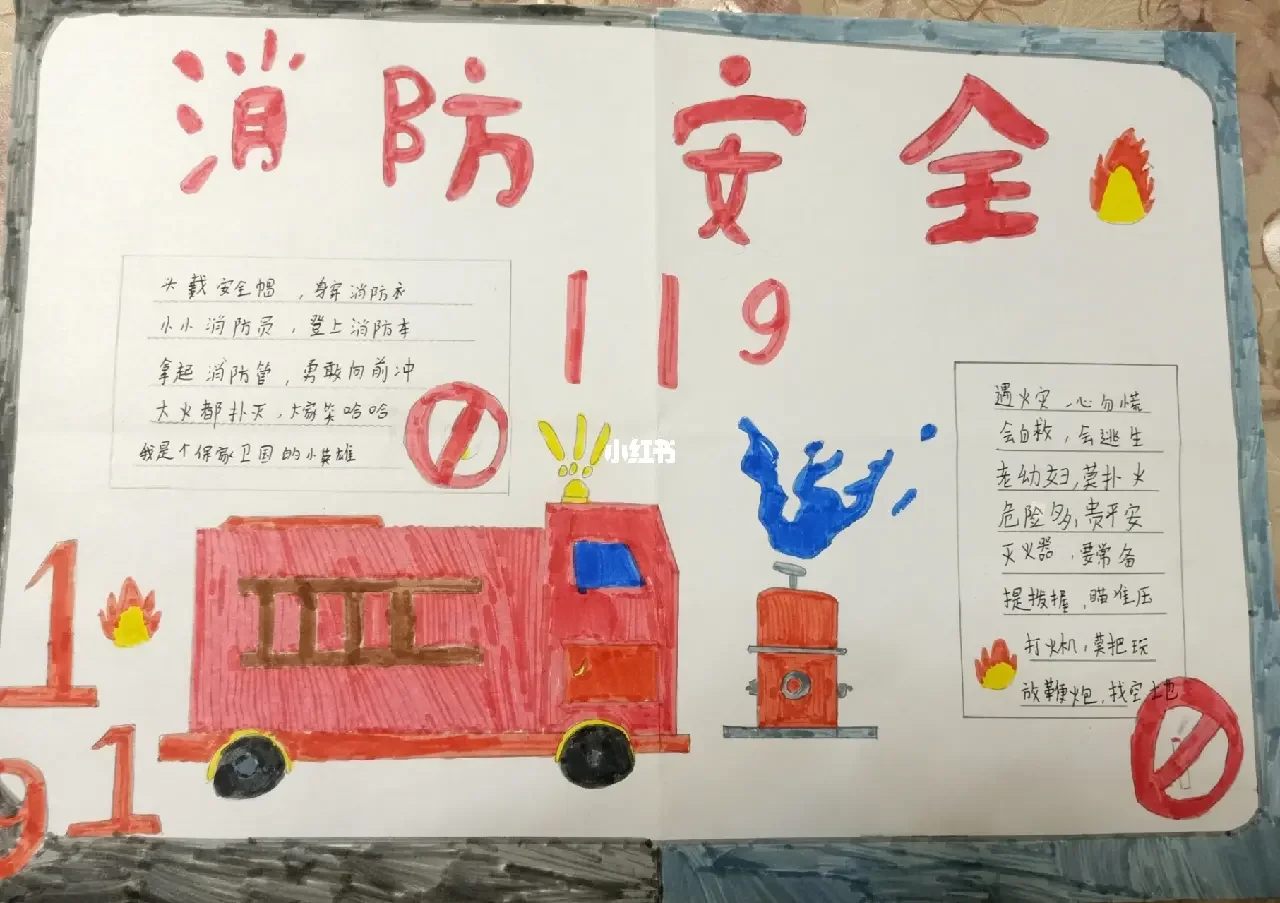 消防安全
119
头戴安全帽，身穿消防衣
小小消防员，登上消防车
拿起消防管，勇敢向前冲
大火都扑灭，大家笑哈哈
我是个保家卫国的小英雄
小红书
遇火灾，心勿慌
会自救，会逃生
老幼妇，莫扑火
危险多，责平安
灭火器，要常备
提拔握，瞄准压
打火机，莫把玩
放鞭炮，找空地
1
91